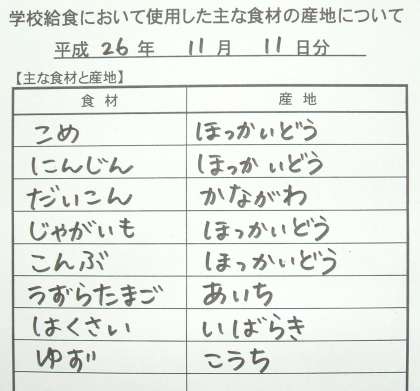 学校給食において使用した主な食材の産地について
平成 26 年 11 月 11 日分
【主な食材と産地】
食材 産地
こめ ほっかいどう
にんじん ほっかいどう
だいこん かながわ
じゃがいも ほっかいどう
こんぶ ほっかいどう
うずらたまご あいち
はくさい いばらき
ゆず こうち